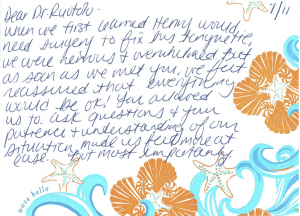 Dear Dr. Ruotolo - 7/11
When we first learned Henry would
need surgery to fix his tongue tie,
we were nervous & overwhelmed but
as soon as we met you, we felt
reassured that everything
would be ok! You allowed
us to ask questions & your
patience & understanding of our
situation made us feel more at
ease. But most importantly,
wave hello